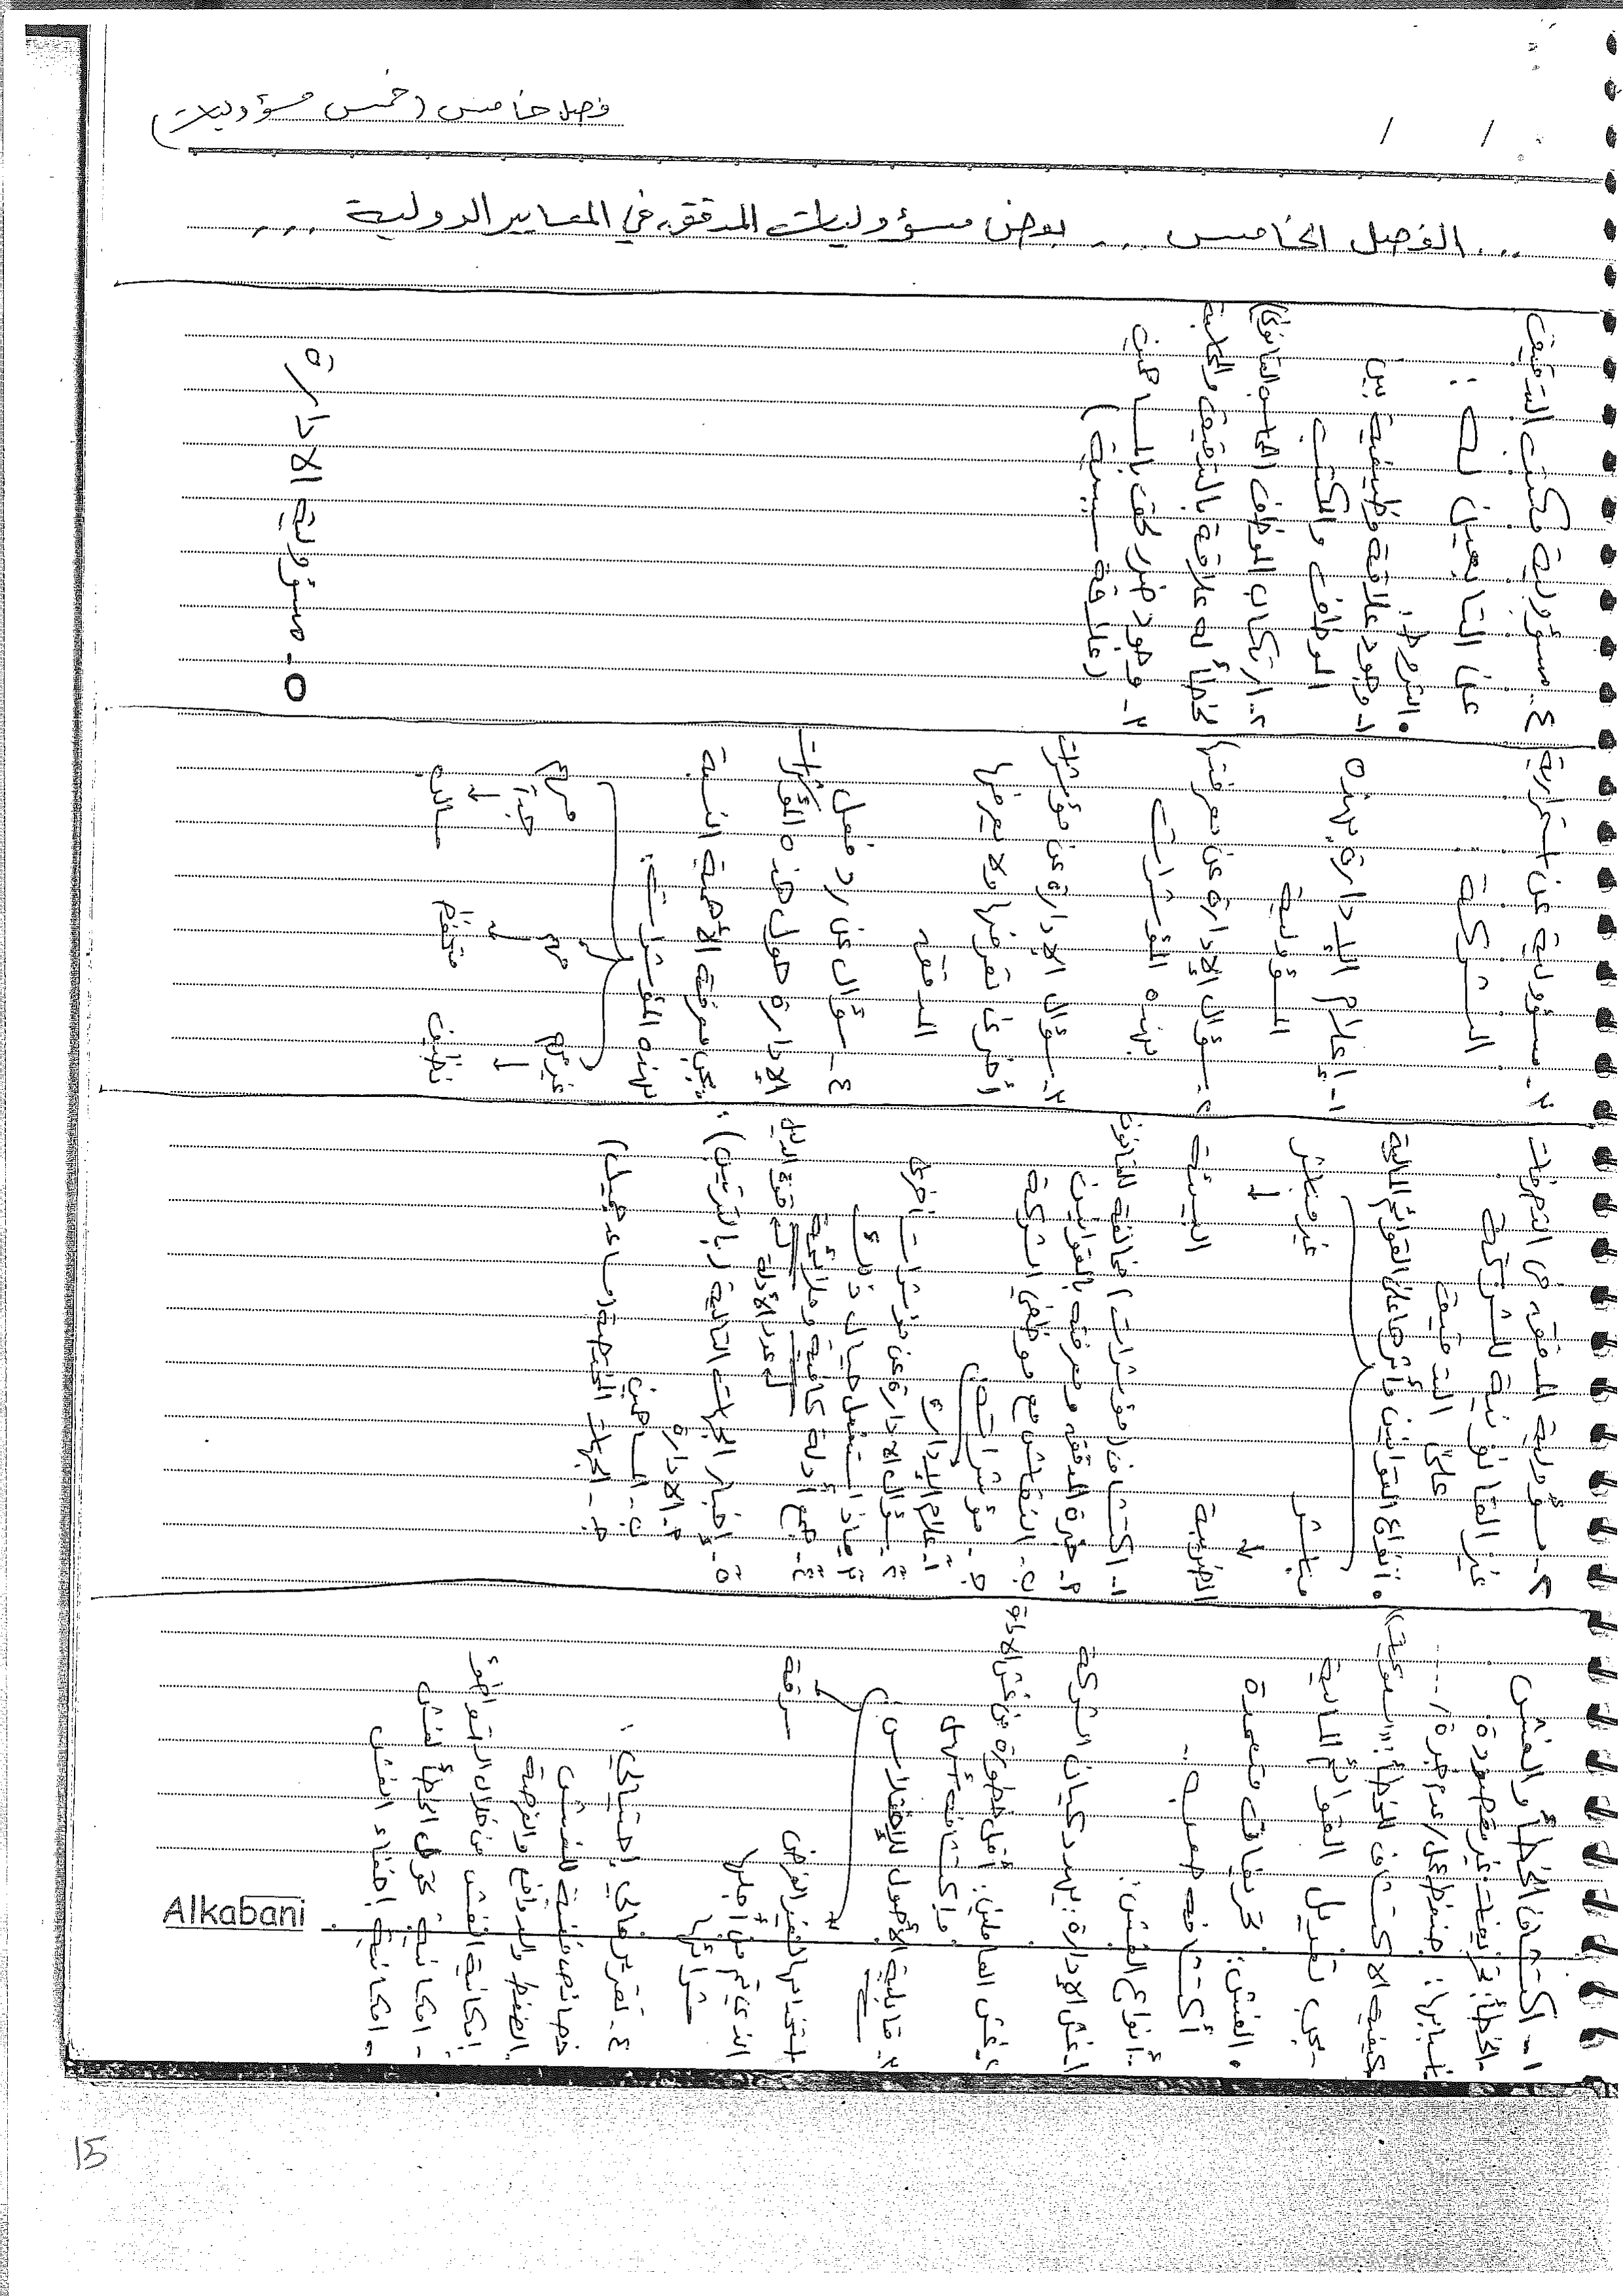 فصل خامس (خمس مسؤوليات)
... الفصل الخامس ... بعض مسؤوليات المدقق في المعايير الدولية ...
١- اكتشاف الخطأ والغش
- الخطأ: تحريفات غير مقصودة.
أسبابها: ضغط عمل / عدم خبرة / ....
كيفية الاكتشاف الخطأ: "السهولة"
- يجب تعديل القوائم المالية
• الغش: تحريفات متعمدة
اكتشافه صعب ..
.. أنواع الغش:
١. غش الإدارة: يهدد كيان الشركة
٢. غش العاملين: أقل خطورة من غش الإدارة
واكتشافه أسهل
٣. قابلية الأصول للإختلاس:
سرقة
استخدامها لغير الغرض
الذي تم من أجلها
شرائها
٤. تقرير مالي إحتيالي:
خصائص فنية للغش
الضغط والدوافع والفرصة
إمكانية الغش من خلال التواطؤ
- امكانية تحول الخطأ لغش
- امكانية إخفاء الغش
٢- مسؤولية المدقق من التصرفات
غير القانونية للشركة
على التدقيق
• أنواع القوانين وأثرها على القوائم المالية
مباشر
غير مباشر
↓
↓
الضريبة
البيئة
١- اكتشاف (مؤشرات) مخالفة للقانون
٢- خبرة المدقق ومعرفته بالقوانين
ب- النقاش مع موظفي الشركة
ج- مؤشرات
١- إعلام الإدارة
٢- سؤال الإدارة عن مؤشرات أخرى
٣- ماذا ستفعل حيال ذلك
٤- جمع أدلة كافية وملائمة
عدد الأدلة
نوع الدليل
٥- إخبار الجهات التالية (بالترتيب):
٢- الإدارة
ب- المساهمين
ج- الجهات المختصة (مساءلة عميل)
٣- مسؤولية عن استمرارية
الشركة:
١- إعلام الإدارة بهذه
المسؤولية
٢- سؤال الإدارة عن معرفتها
بهذه المؤشرات
٣- سؤال الإدارة عن مؤشرات
أخرى تعرفها ولا يعرفها
المدقق
٤- سؤال عن رد فعل
الإدارة حول هذه المؤشرات
: يجب معرفة الأهمية النسبية
بهذه المؤشرات:
غير مهم
مهم
مهم جداً
↓
↓
↓
نظيف
متحفظ
سالب
٤- مسؤولية مكتب التدقيق
عن التابعين له:
• الشروط:
١- وجود علاقة وظيفية بين
الموظف والمكتب
٢- ارتكاب الموظف (المحاسب القانوني)
لخطأ له علاقة بالتدقيق والمحاسبة
٣- وجود ضرر لحق بالمساهمين
(علاقة سببية)
٥- مسؤولية الادارة
Alkabani
15